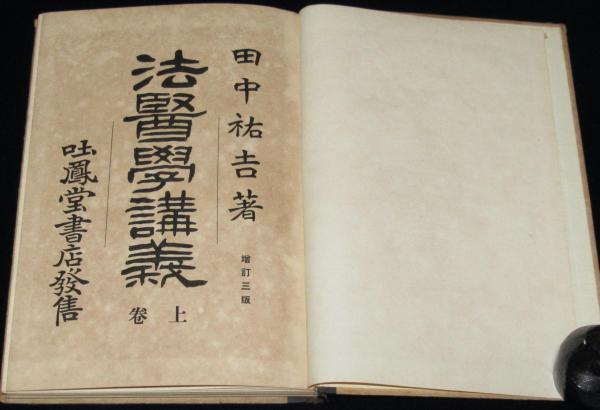 田中祐吉著
増訂三版
法醫學講義
上卷
吐鳳堂書店發售